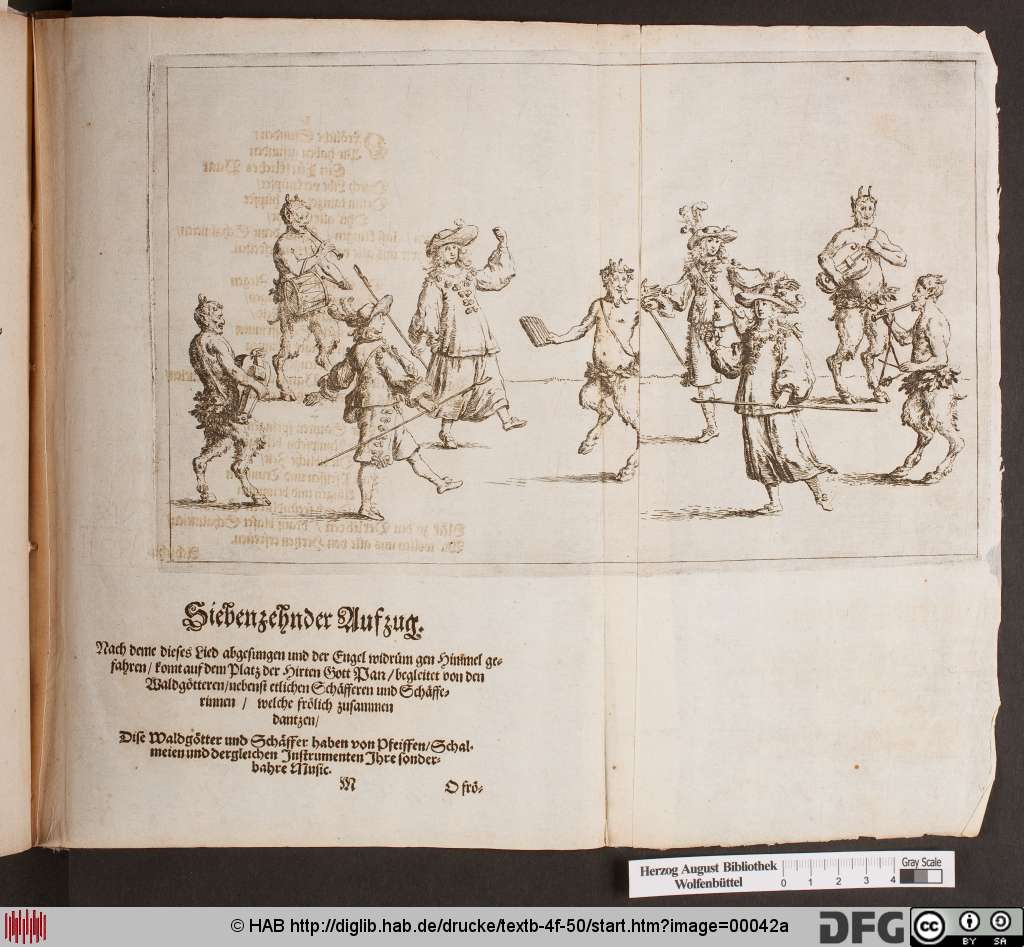 Siebenzehnder Aufzug.
Nach deme dieses Lied abgesungen und der Engel widrüm gen Himmel ge-
fahren / komt auf dem Platz der Hirten Gott Pan / begleitet von den
Waldgötteren / nebenst etlichen Schäfferen und Schäffe-
rinnen / welche frölich zusammen
dantzen /
Dise Waldgötter und Schäffer haben von Pfeiffen / Schal-
meien und dergleichen Instrumenten Ihre sonder-
bahre Music.
M O frö-
Herzog August Bibliothek
Wolfenbüttel
0 1 2 3 4
Gray Scale
© HAB http://diglib.hab.de/drucke/textb-4f-50/start.htm?image=00042a
DFG
cc
BY SA